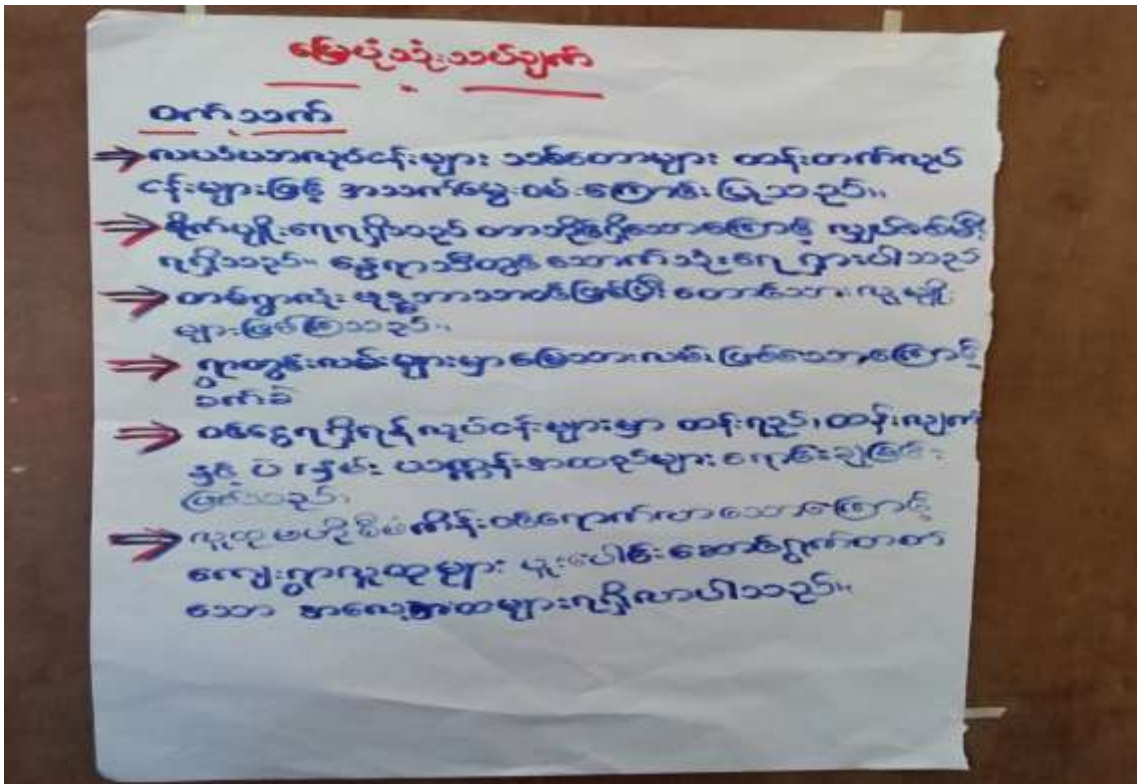 မြေပုံသုံးသပ်ချက်
ဝက်သက်
⇒ လယ်ယာလုပ်ငန်းများ သစ်တောများ ထန်းတက်လုပ်
ငန်းများဖြင့် အသက်မွေးဝမ်းကြောင်းပြုသည်။
⇒ စိုက်ပျိုးရေရရှိသည် တာဘိုရှိသောကြောင့် လျှပ်စစ်မီး
ရရှိသည်။ နွေရာသီတွင် သောက်သုံးရေ ရှားပါသည်
⇒ တစ်ရွာလုံး ဗုဒ္ဓဘာသာဝင်ဖြစ်ပြီး တောင်သူ လူမျိုး
များဖြစ်ကြသည်။
⇒ ရွာတွင်းလမ်းများမှာ မြေသားလမ်း ဖြစ်သောကြောင့်
ခက်ခဲ
⇒ ဝင်ငွေရရှိရန် လုပ်ငန်းများမှာ ထန်းရည်၊ ထန်းလျက်
နှင့် ပဲ နှမ်း ယာထွက် များ ရောင်းချခြင်း
ဖြစ်သည်၊
⇒ လူထုဗဟိုပြုစီမံကိန်း ဝင်ရောက်လာသောကြောင့်
ကျေးရွာလူထုများ ပူးပေါင်းဆောင်ရွက်တတ်
သော အလေ့အထများရရှိလာပါသည်။